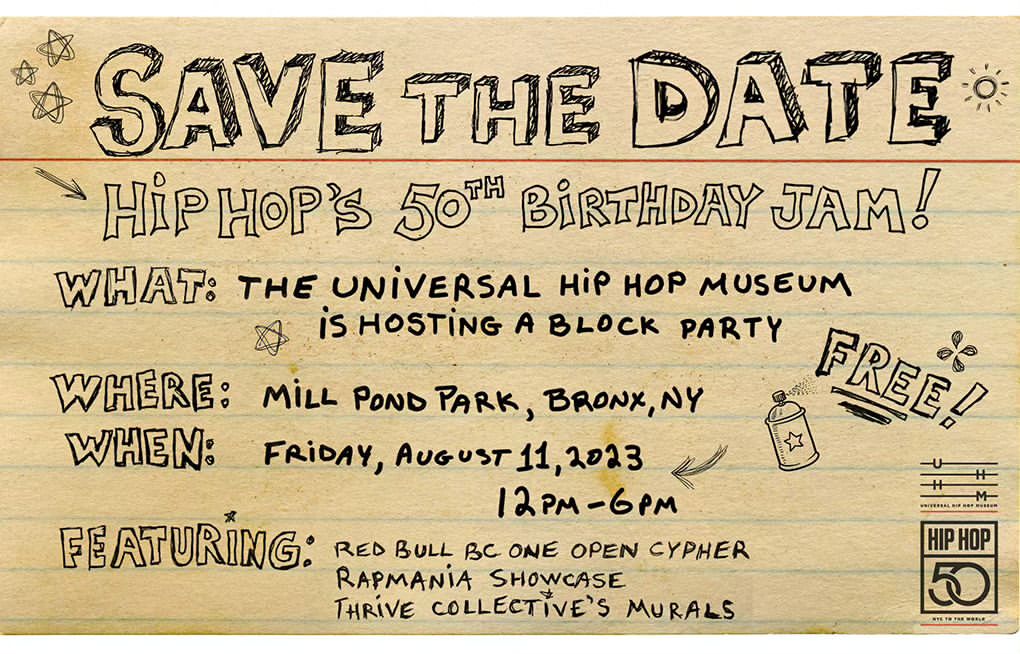 SAVE THE DATE
HiP HOP'S 50TH BiRTHDAY JAM!
WHAT: THE UNiVERSAL HiP HOP MUSEUM
iS HOSTiNG A BLOCK PARTY
FREE!
WHERE: MiLL POND PARK, BRONX, NY
WHEN: FRiDAY, AUGUST 11, 2023
12PM - 6PM
FEATURiNG: RED BULL BC ONE OPEN CYPHER
RAPMANiA SHOWCASE
THRiVE COLLECTiVE'S MURALS
U H
H M
UNIVERSAL HIP HOP MUSEUM
HIP HOP
50
NYC TO THE WORLD